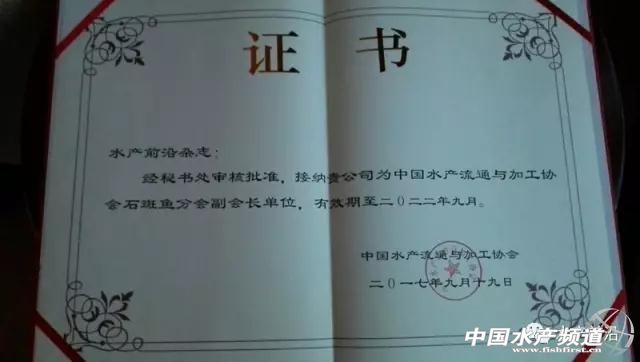 证 书
水产前沿杂志：
经秘书处审核批准，接纳贵公司为中国水产流通与加工协
会石斑鱼分会副会长单位，有效期至二〇二二年九月。
中国水产流通与加工协会
二〇一七年九月十九日
中国水产频道
www.fishfirst.cn